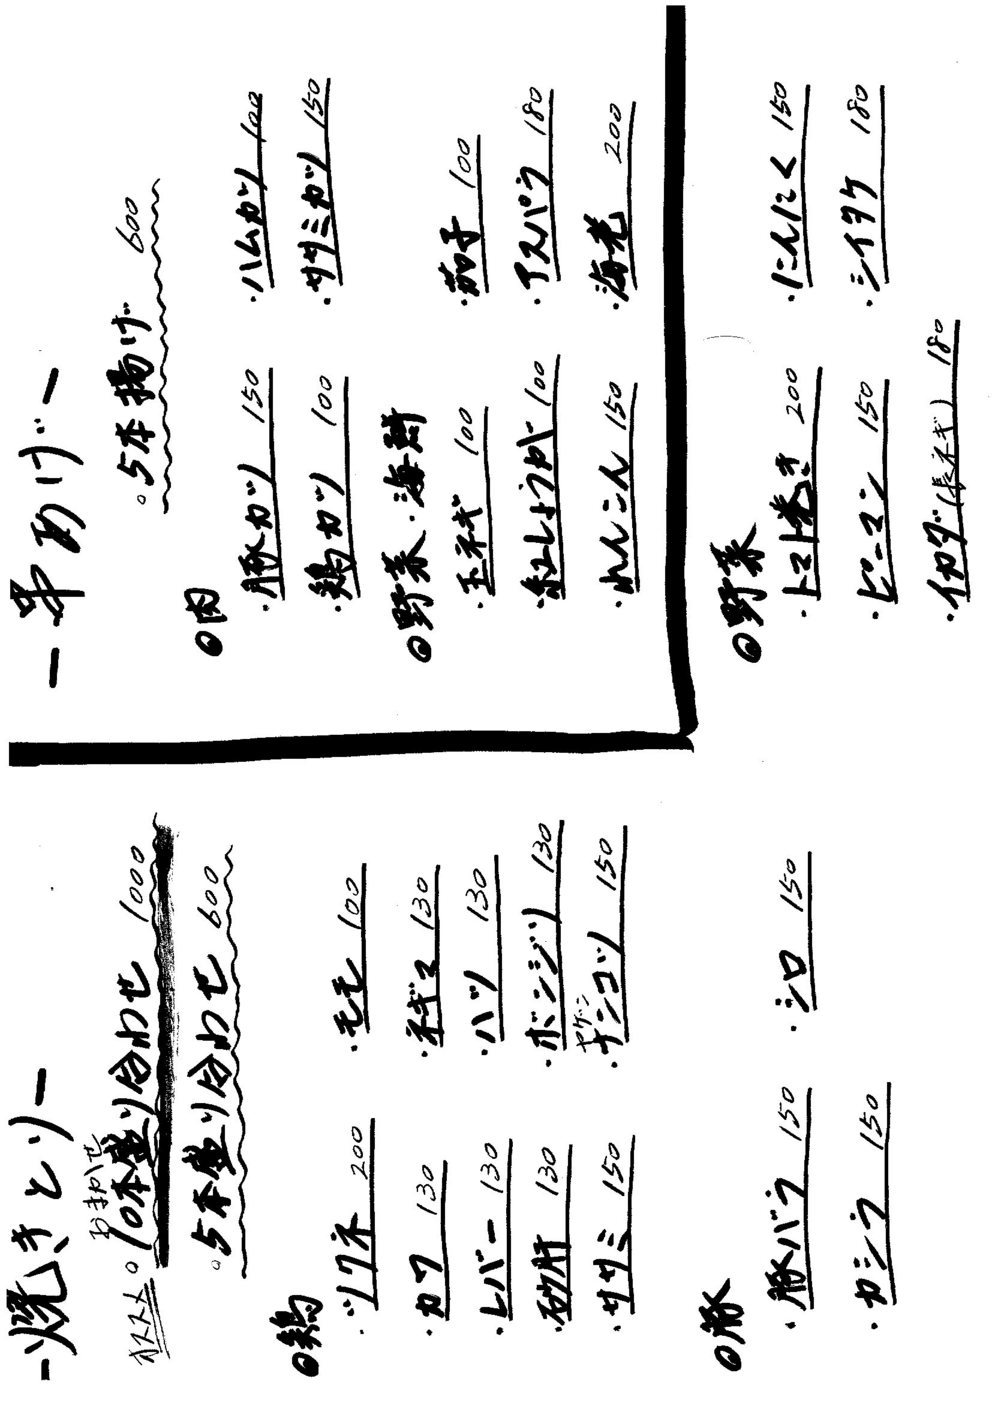 -焼きとり-
オススメ
おまかせ
。10本盛り合わせ 1000
。5本盛り合わせ 600
◎鶏
・ツクネ 200
・モモ 100
・カワ 130
・ネギマ 130
・レバー 130
・ハツ 130
・砂肝 130
・ボンジリ 130
・ササミ 150
ヤゲン
・ナンコツ 150
◎豚
・豚バラ 150
・シロ 150
・カシラ 150
◎野菜
・トマト巻き 200
・にんにく 150
・ピーマン 150
・シイタケ 180
・イカダ(長ネギ) 180
-串あげ-
。5本揚げ 600
◎肉
・豚カツ 150
・ハムカツ 100
・鶏カツ 100
・ササミカツ 150
◎野菜・海鮮
・玉ネギ 100
・茄子 100
・紅しょうが 100
・アスパラ 180
・れんこん 150
・海老 200